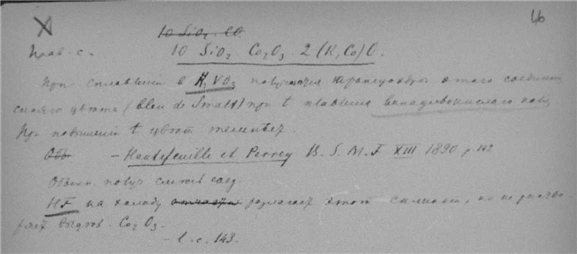 16
10 SiO2 CO
Прав. с. 10 SiO2 Co2O3 2 (K, Co) O.
При сплавлении в H3VO3 получается этого соединения
синяго цвета (bleu de Smalt) при t плавления ванадиевокислаго
При повышении t цвет темнеет.
Обр – Hautefeuille et Perrey B. S. M. F. XIII 1890. p. 143
Обыкн. получ
HF на холоду разлагает этот силикат, но не раство-
ряет Co2O3.
– l. c. 143.